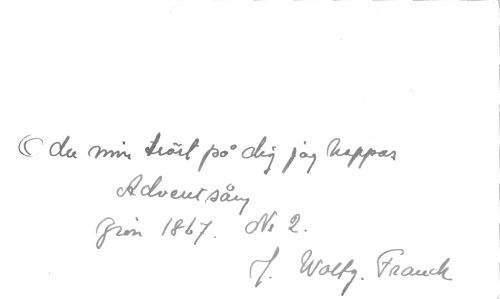 O du min tröst på dig jag hoppas
Adventsång
1867. No 2.
J. Wolfg. Franck